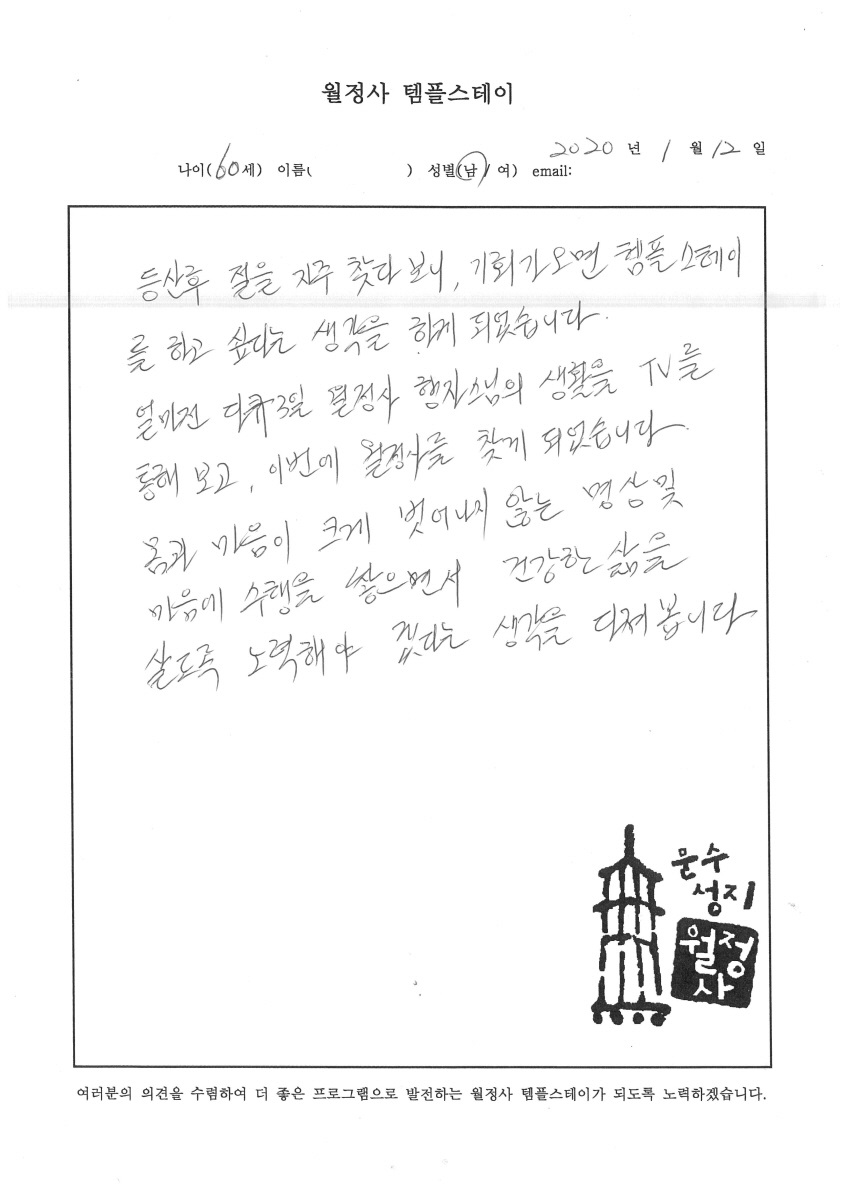 월정사 템플스테이
2020 년 1 월 12 일
나이(60세) 이름( ) 성별(남/여) email:
등산후 절을 자주 찾다 보니, 기회가 오면 템플스테이
를 하고 싶다는 생각을 하게 되었습니다.
얼마전 다큐3일 월정사 행자스님의 생활을 TV를
통해 보고, 이번에 월정사를 찾게 되었습니다.
몸과 마음이 크게 벗어나지 않는 명상 및
마음에 수행을 쌓으면서 건강한 삶을
살도록 노력해야 겠다는 생각을 다져 봅니다
문수
성지
월정
사
여러분의 의견을 수렴하여 더 좋은 프로그램으로 발전하는 월정사 템플스테이가 되도록 노력하겠습니다.